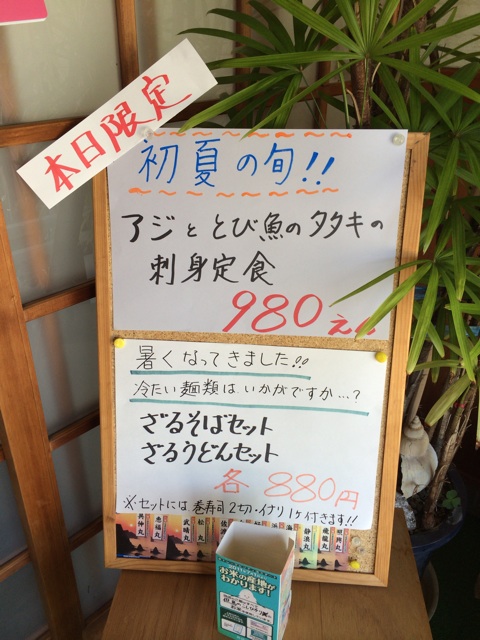 本日限定
初夏の旬!!
アジととび魚のタタキの
刺身定食
980
暑くなってきました!!
冷たい麺類はいかがですか…?
ざるそばセット
ざるうどんセット
各 880円
※・セットには巻寿司2切・イナリ1ケ付きます!!
お米の産地が
わかります!